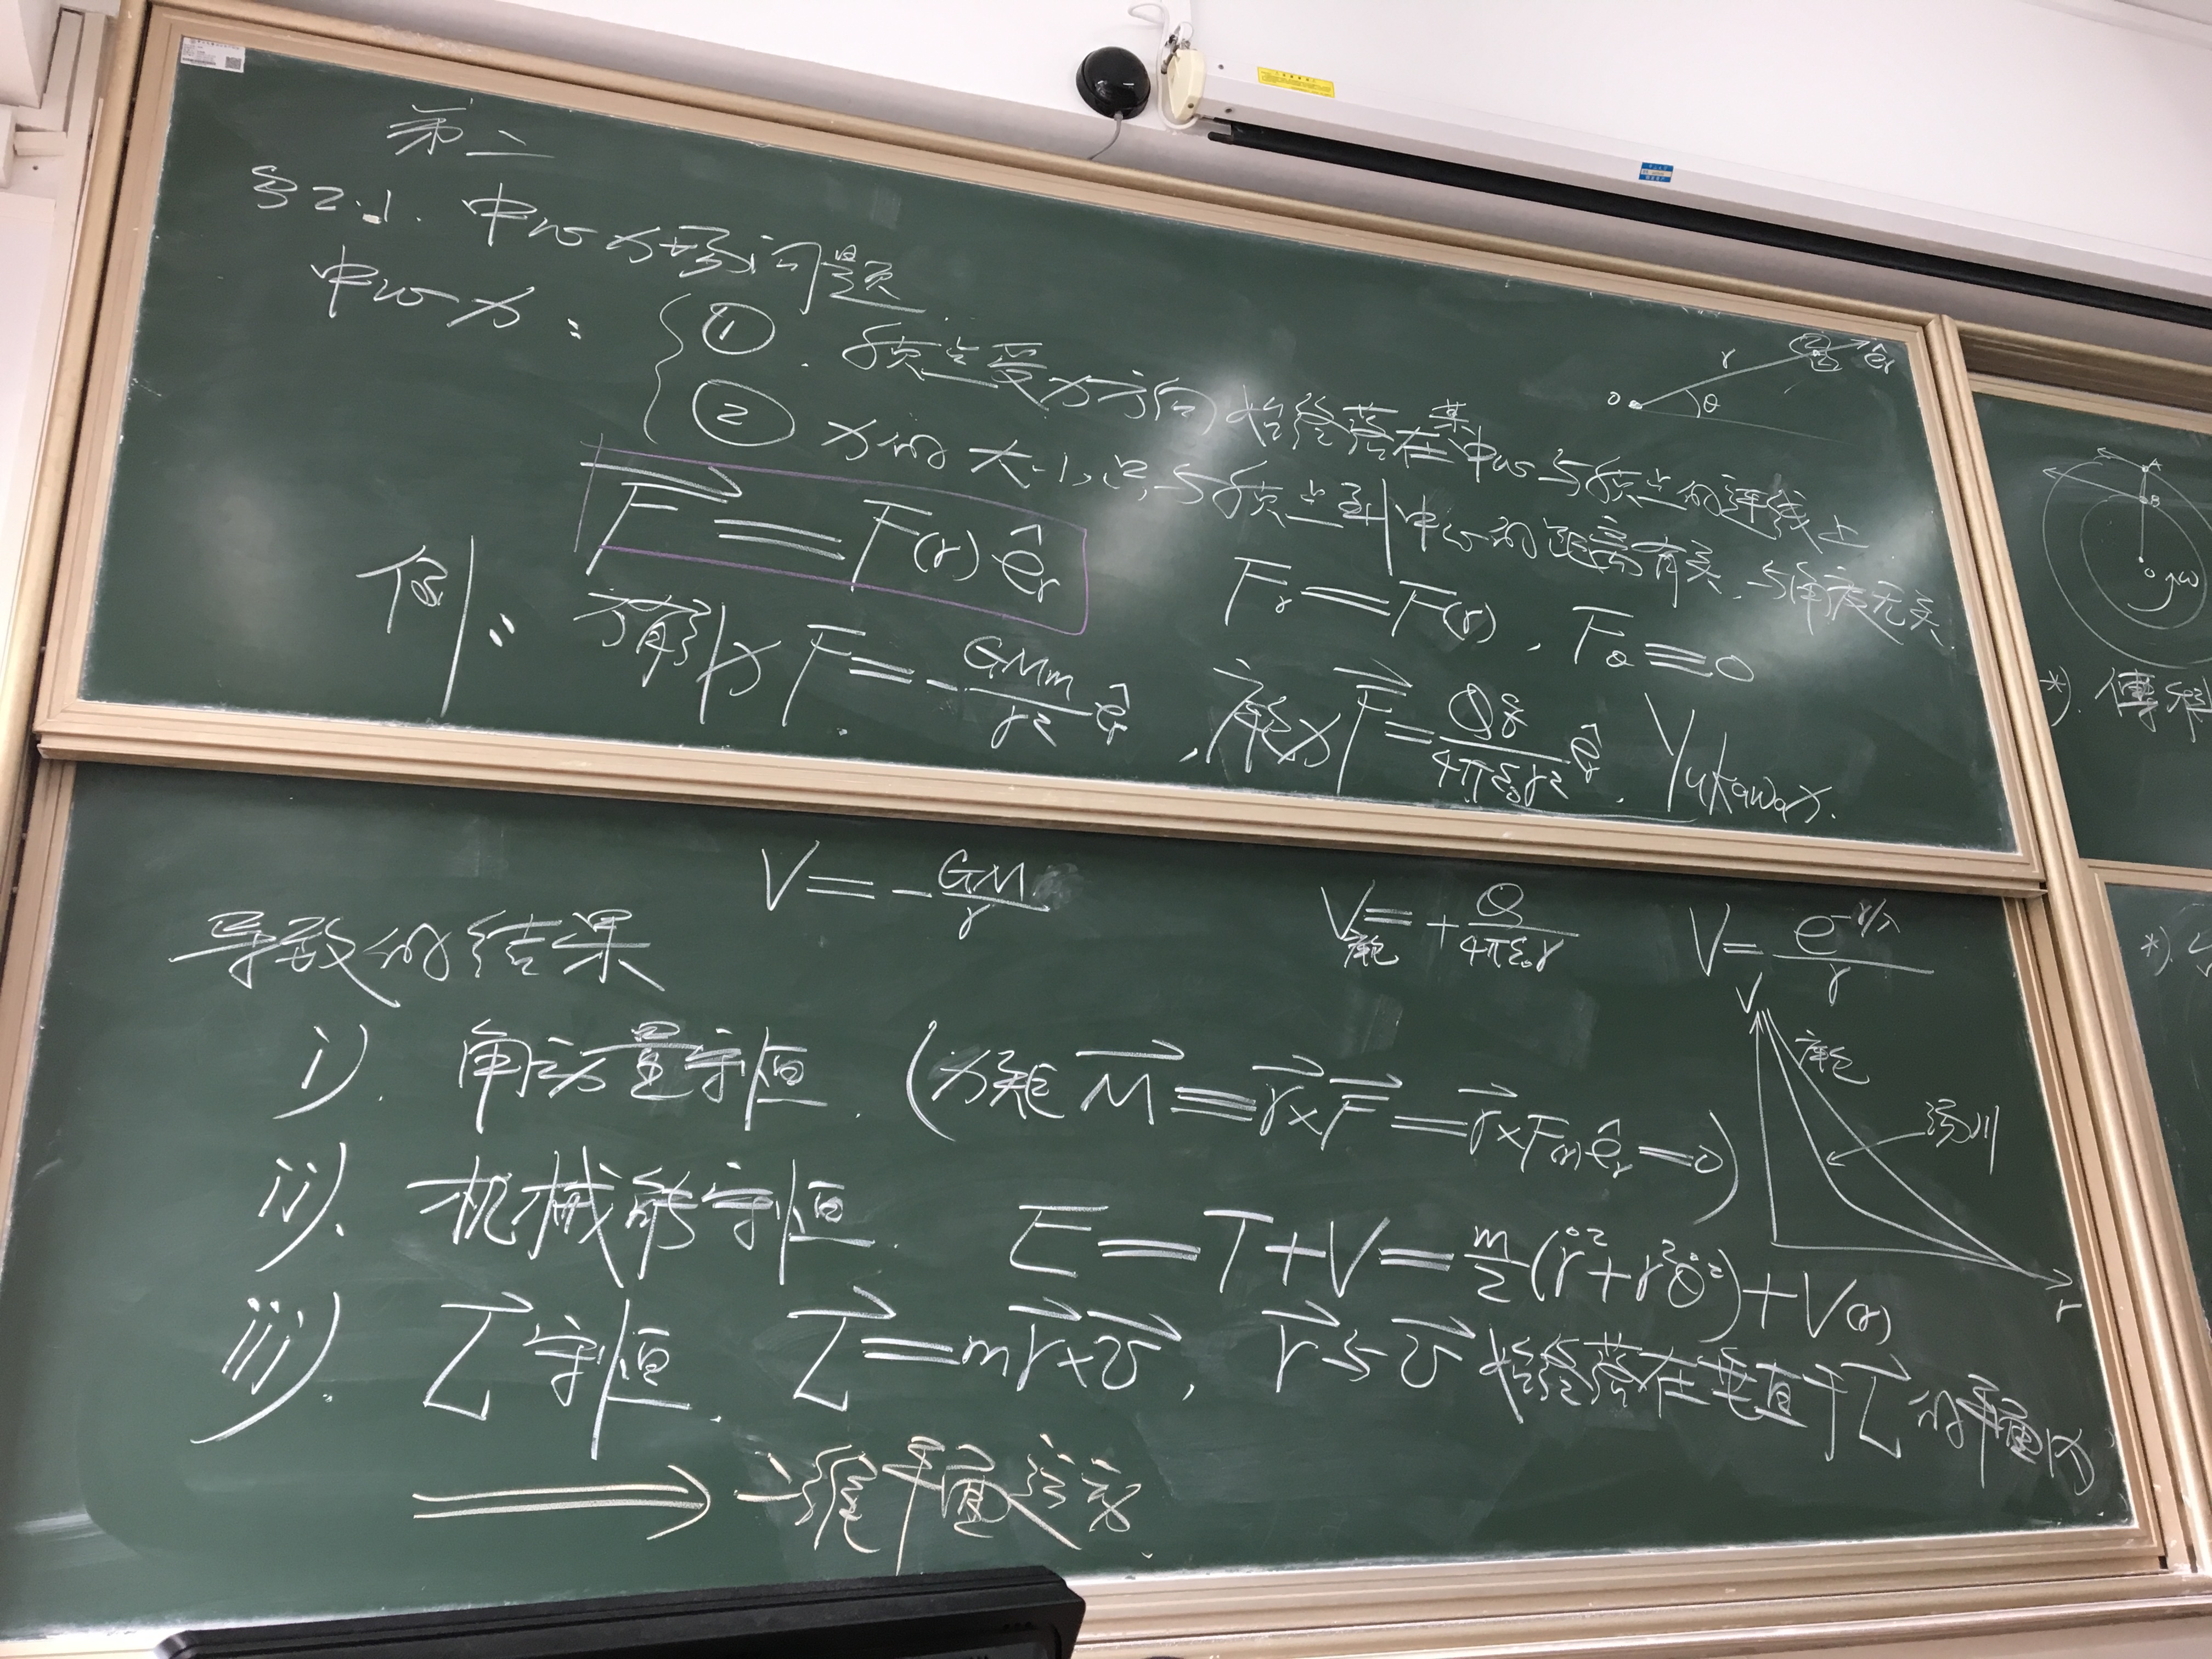 第二
§2.1. 中心力场问题
中心力:
① 质点受力方向始终落在某中心与质点的连线上
② 力的大小,只与质点到中心的距离有关,与角度无关
O r θ êr
F = F(r) êr
Fr = F(r), Fθ ≡ 0
例: 万有引力 F = - GMm/r² êr, 库仑力 F = Qq/4πε₀r² êr. Yukawa力.
V = - GM/r
V库仑 = + Q/4πε₀r
V = e^(-r/λ)/r
导致的结果
i). 角动量守恒. (力矩 M ≡ r×F = r×F(r)êr = 0)
ii). 机械能守恒. E = T+V = m/2(ṙ²+r²θ̇²)+V(r)
iii). L守恒. L = mr×v, r与v始终落在垂直于L的平面内
⟹ 二维平面运动.
V 库仑
汤川
r
A
B
O ω
*).
*).